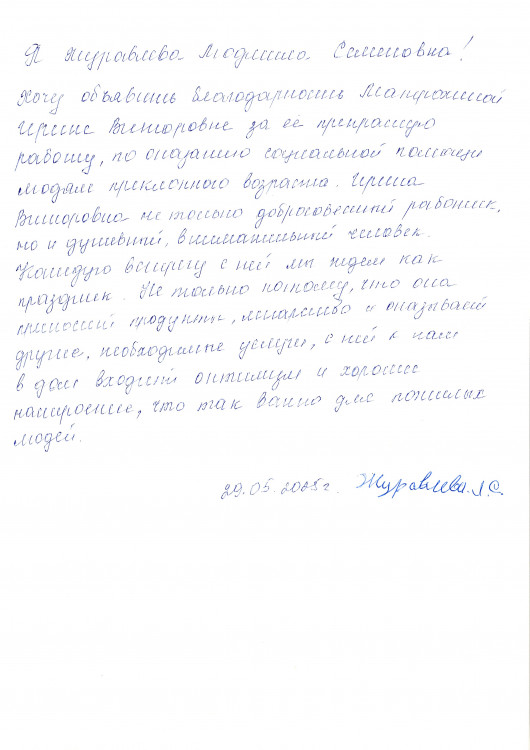 Я Журавлева Людмила Семеновна!
Хочу объявить благодарность Матрохиной
Ирине Викторовне за её прекрасную
работу, по оказанию социальной помощи
людям преклонного возраста. Ирина
Викторовна не только добросовестный работник,
но и душевный, внимательный человек.
Каждую встречу с ней мы ждем как
праздник. Не только потому, что она
приносит продукты, лекарство и оказывает
другие, необходимые услуги, с ней к нам
в дом входит оптимизм и хорошее
настроение, что так важно для пожилых
людей.
29.05.2025г. Журавлева.Л.С.